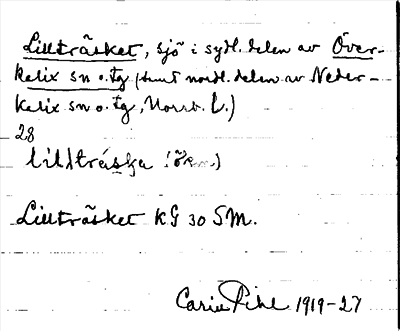 Lillträsket, sjö i sydl. delen av Över-
kalix sn o. tg (samt nordl. delen av Neder-
kalix sn o. tg, Norrb. L.)
28
Lillträsket KG 30 SM.
Carin Pihl 1919-27